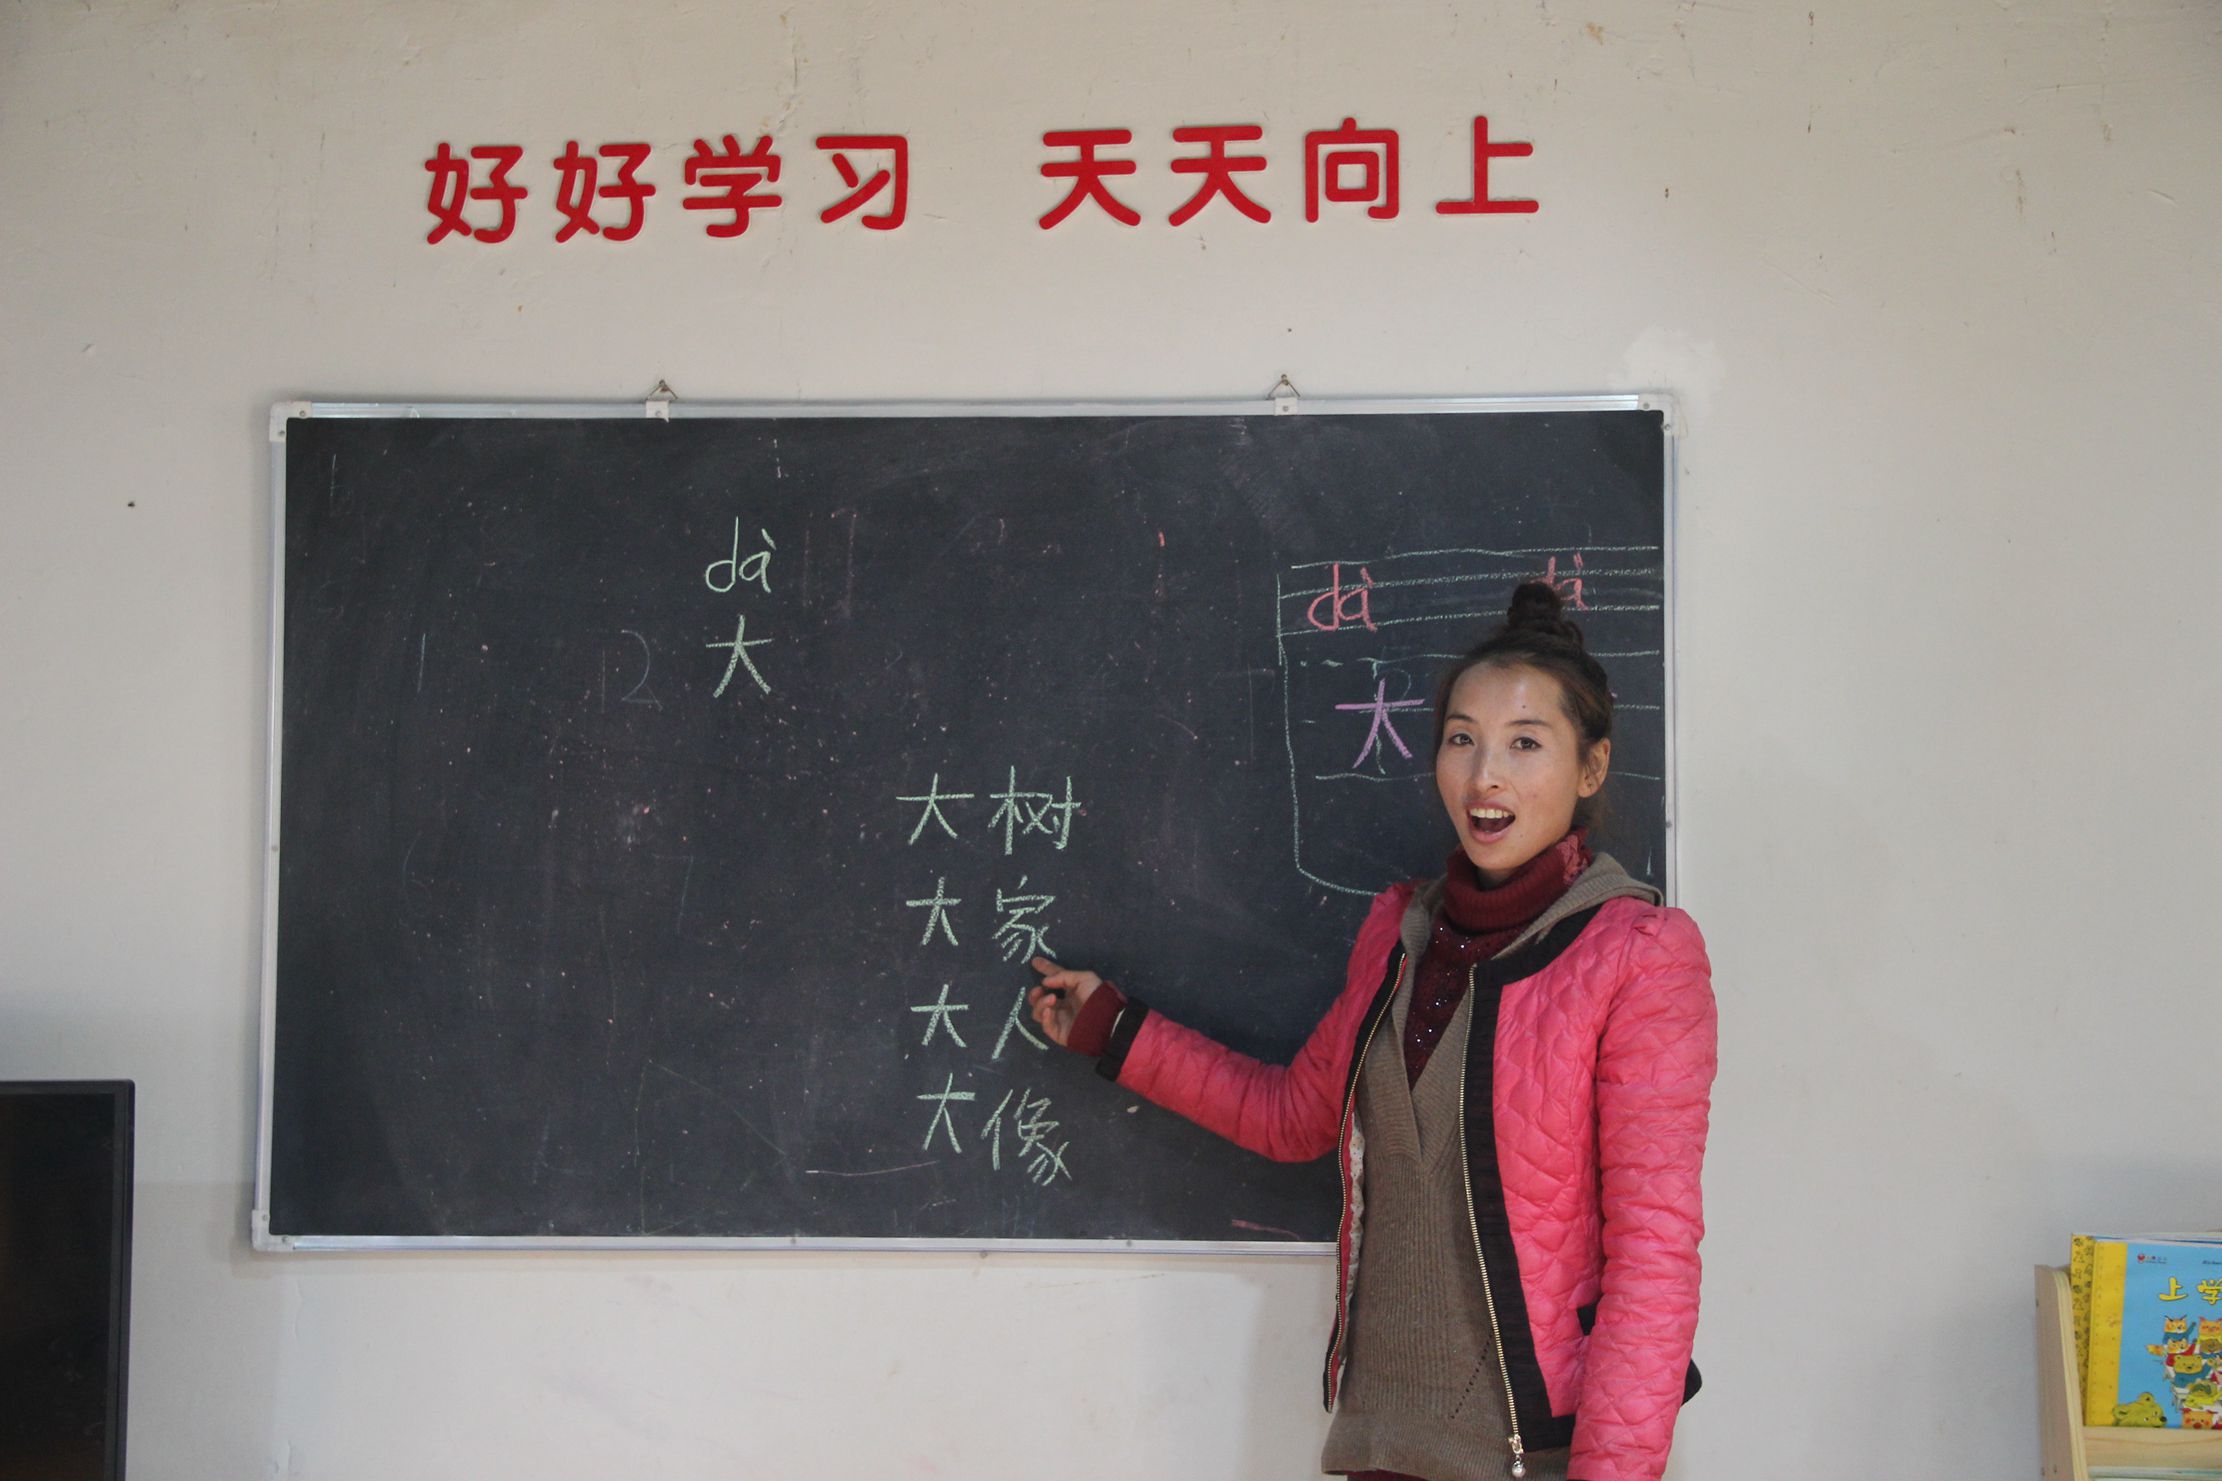 好好学习 天天向上
dà
大
dà dà
大
大树
大家
大人
大像
12
上学